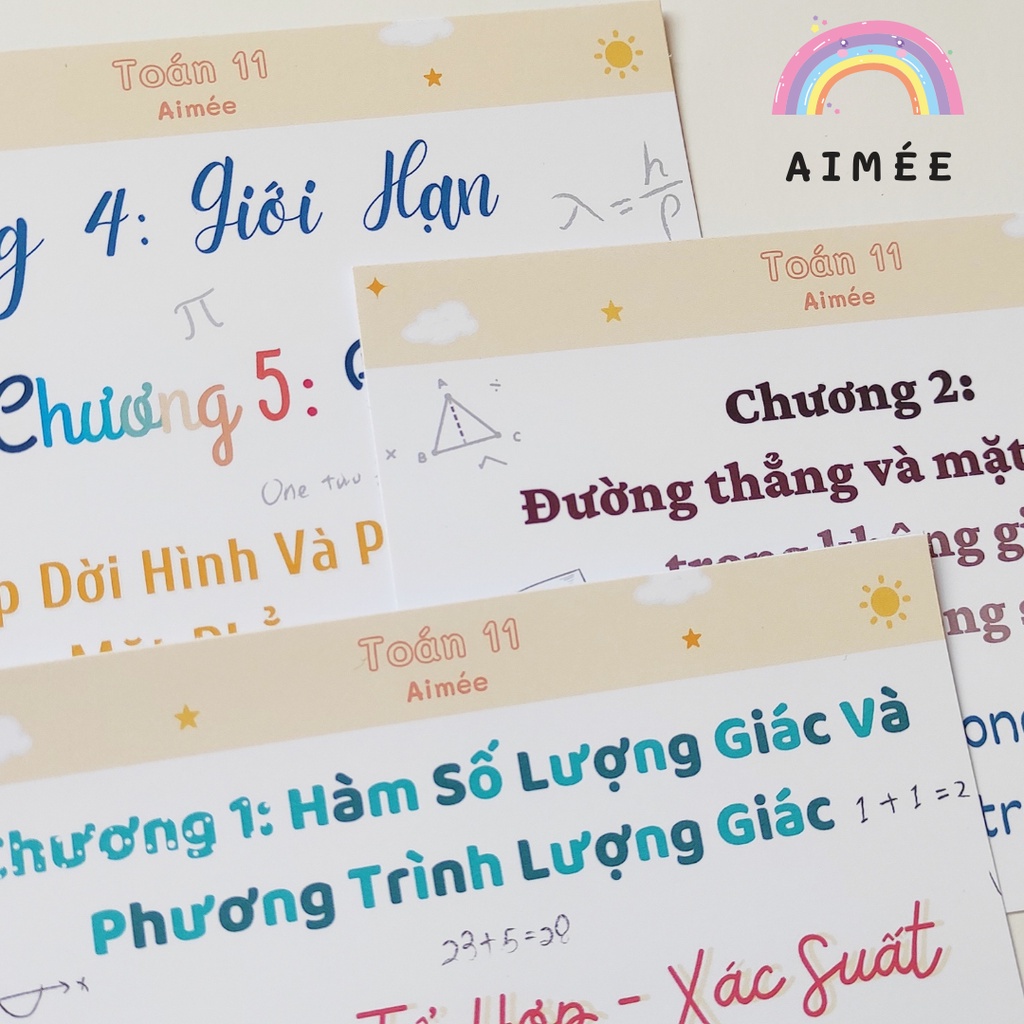 AIMÉE
Toán 11
Aimée
4: Giới Hạn
λ = h/p
π
Chương 5:
One two
Dời Hình Và P
Toán 11
Aimée
A
÷
x
B
C
Chương 2:
Đường thẳng và mặt
trong không gi
ng s
Toán 11
Aimée
Chương 1: Hàm Số Lượng Giác Và
Phương Trình Lượng Giác
1 + 1 = 2
23+5=28
x
Tổ Hợp - Xác Suất